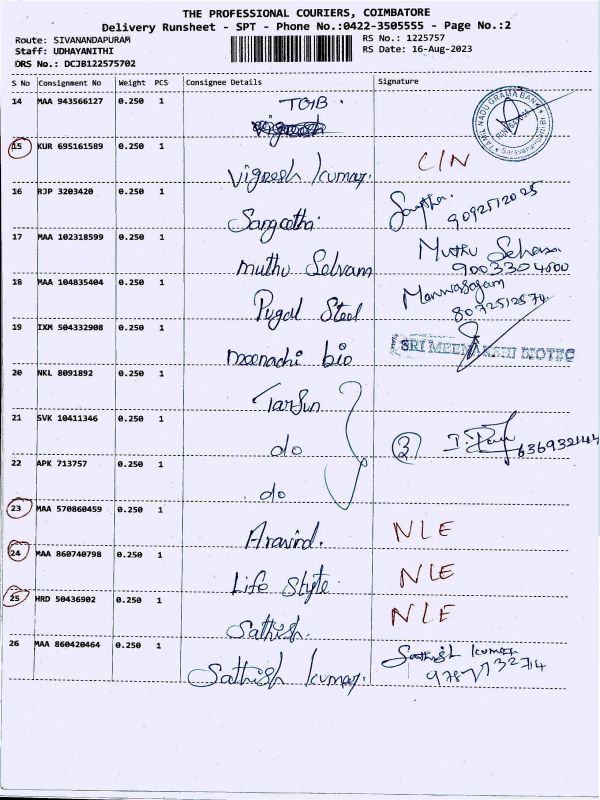 THE PROFESSIONAL COURIERS, COIMBATORE
Delivery Runsheet - SPT - Phone No.:0422-3505555 - Page No.:2
Route: SIVANANDAPURAM
RS No.: 1225757
Staff: UDHAYANITHI
RS Date: 16-Aug-2023
DRS No.: DCJB122575702
S No Consignment No Weight PCS Consignee Details Signature
14 MAA 943566127 0.250 1 TGB.
TAMIL NADU GRAMA BANK
15 KUR 695161589 0.250 1 Vignesh kumar. C/N
16 RJP 3203420 0.250 1 Sangeetha. 9092512025
17 MAA 102318599 0.250 1 Muthu Selvam Muthu
9003304600
18 MAA 104835404 0.250 1 Pugal Steel
8072512574
19 IXM 504332908 0.250 1 meenachi bio SRI MEENAKSHI BIOTEC
20 NKL 8091892 0.250 1 Tarsun
21 SVK 10411346 0.250 1 do 3 636932144
22 APK 713757 0.250 1 do
23 MAA 570860459 0.250 1 Aravind. NLE
24 MAA 860740798 0.250 1 Life Style. NLE
25 HRD 50436902 0.250 1 Sathish. NLE
26 MAA 860420464 0.250 1 Sathish kumar. Sathish kumar